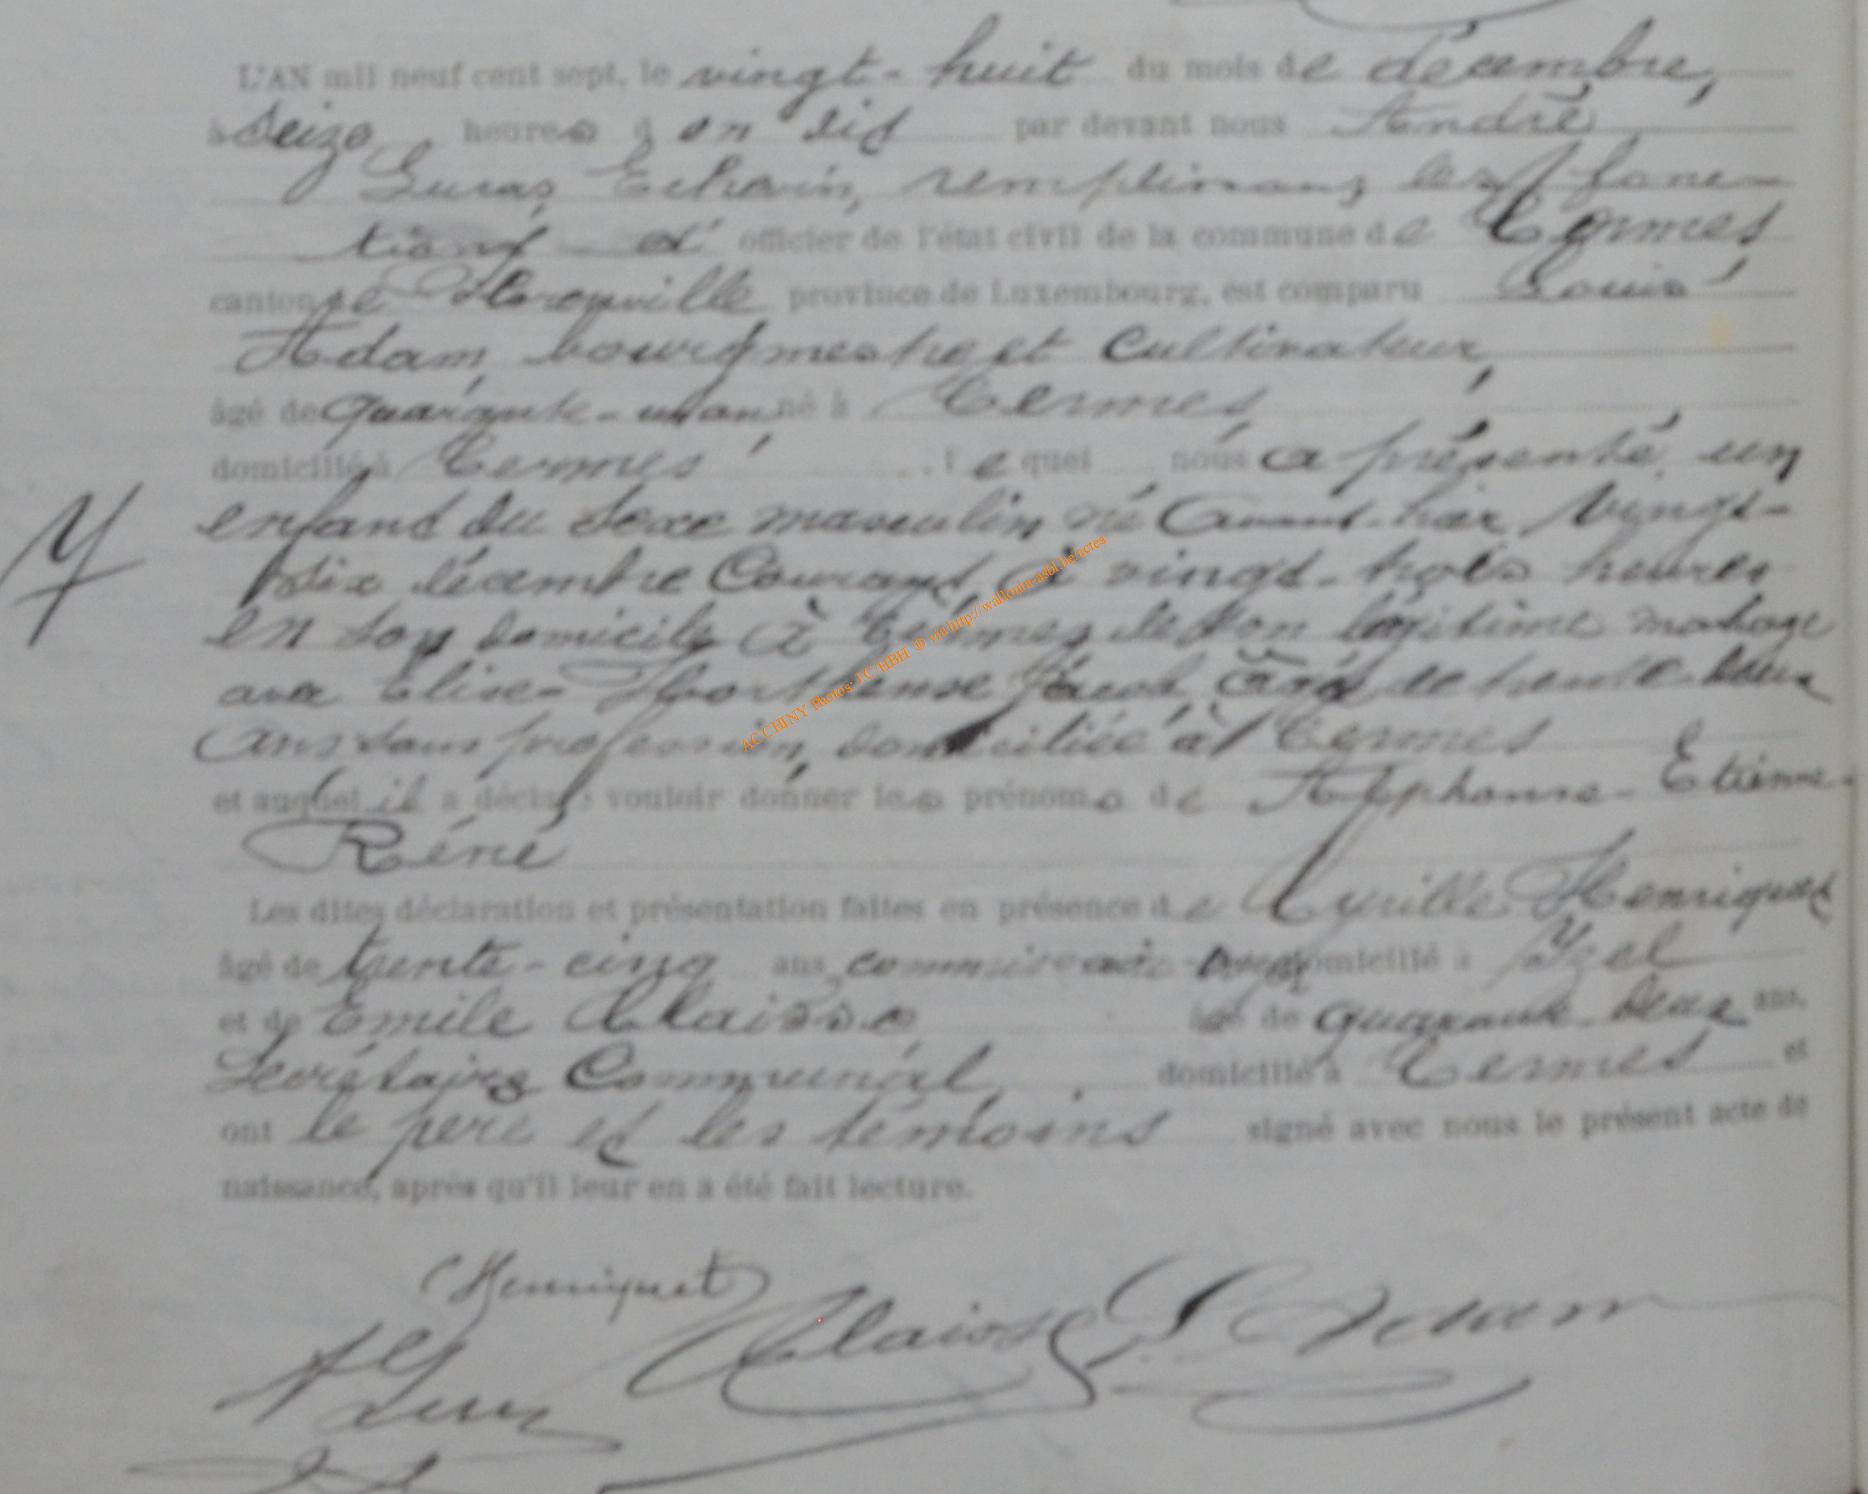 L'AN mil neuf cent sept, le vingt-huit du mois de décembre,
à seize heures du soir par devant nous André
Lucas, Echevin, remplissant les fonc-
tions d' officier de l'état civil de la commune de Termes
canton de Florenville province de Luxembourg, est comparu Louis
Adam, bourgmestre et cultivateur,
âgé de quarante-un ans né à Termes,
domicilié à Termes, lequel nous a présenté un
enfant du sexe masculin né avant-hier vingt-
six décembre courant, à vingt-trois heures
en son domicile à Termes de son légitime mariage
avec Elise-Horthense Jacob, âgée de trente-deux
ans sans profession, domiciliée à Termes
et auquel il a déclaré vouloir donner les prénoms de Alphonse-Etienne-
Réné
Les dites déclaration et présentation faites en présence de Cyrille Henriquet
âgé de trente-cinq ans, commissaire domicilié à Izel
et de Emile Claisse, âgé de quarante-deux ans,
Secrétaire Communal, domicilié à Termes et
ont le père et les témoins signé avec nous le présent acte de
naissance, après qu'il leur en a été fait lecture.
Henriquet
Claisse L Adam
A Lucas
AC CHINY Photos: J.C HBH ® via http://wallonia-asbl.be/actes